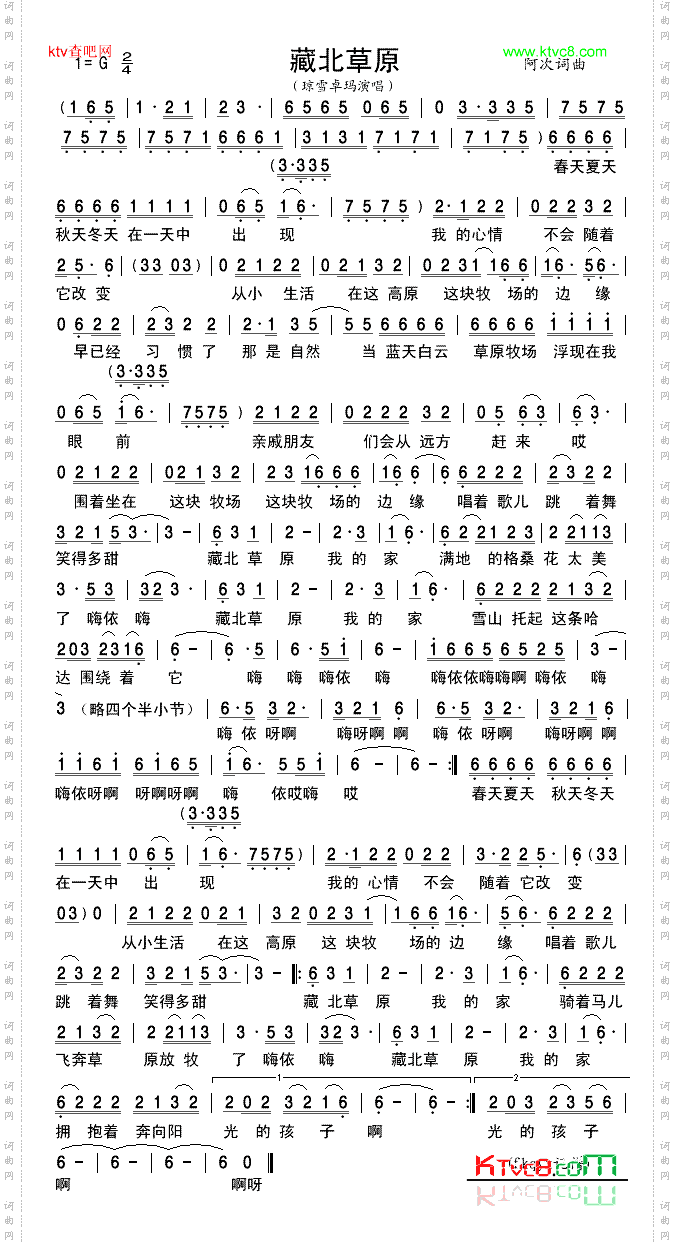 ktv查吧网
www.ktvc8.com
1=G 2/4
藏北草原
阿次词曲
（琼雪卓玛演唱）
(1 6 5 | 1 · 2 1 | 2 3 · | 6 5 6 5 0 6 5 | 0 3 · | 7 5 7 5 |
7 5 7 5 | 7 5 7 1 6 6 6 1 | 3 1 3 1 7 1 7 1 | 7 1 7 5 ) 6 6 6 6 |
(3 · 3 3 5
春天夏天
6 6 6 6 1 1 1 1 | 0 6 5 1 6 · | 7 5 7 5 ) 2 · 1 2 2 | 0 2 2 3 2 |
秋天冬天 在一天中 出 现 我 的心情 不会 随着
2 5 · 6 | (3 3 0 3) | 0 2 1 2 2 | 0 2 1 2 2 | 0 2 3 1 1 6 6 | 1 6 · 5 6 · |
它改 变 从小 生活 在这 高原 这块牧 场的 边 缘
0 6 2 2 | 2 3 2 2 | 2 · 1 3 5 | 5 5 6 6 6 6 | 6 1 6 6 | 1 1 1 1 |
早已经 习 惯了 那是自然 当 蓝天白云 草原牧场 浮现在我
(3 · 3 3 5
0 6 5 1 6 · | 7 5 7 5 ) 2 1 2 2 | 0 2 2 2 3 2 | 0 5 6 3 | 6 3 · |
眼 前 亲戚朋友 们会从 远方 赶 来 哎
0 2 1 2 2 | 0 2 1 3 2 | 2 3 1 6 6 6 | 1 6 6 6 | 6 2 2 2 | 2 3 2 2 |
围着坐在 这块 牧场 这块牧 场的 边缘 唱着 歌儿 跳 着舞
3 2 1 5 3 · | 3 - | 6 3 1 | 2 - | 2 · 3 | 1 6 · | 6 2 2 2 1 2 3 2 | 2 2 1 1 3 |
笑得多甜 藏北 草 原 我 的 家 满地 的格桑 花 太 美
3 · 5 3 | 3 2 3 · | 6 3 1 | 2 - | 2 · 3 | 1 6 · | 6 2 2 2 2 1 3 2 |
了 嗨依 嗨 藏北草 原 我 的 家 雪山 托起 这条哈
2 0 3 2 3 1 6 | 6 - | 6 · 5 | 6 · 5 1 | 6 - | 1 6 6 5 6 5 2 5 | 6 · 5 |
达 围绕 着 它 嗨 嗨 嗨依 嗨 嗨依依嗨嗨啊 嗨依 嗨
3 （略四个半小节）| 6 · 5 3 2 · | 3 2 1 6 | 6 · 5 3 2 · | 3 2 1 6 |
嗨 依 呀啊 嗨呀啊 啊 嗨 依 呀啊 嗨呀啊 啊
1 1 6 1 6 1 6 5 | 1 6 · 5 5 1 | 6 - | 6 - :‖ 6 6 6 6 6 6 6 6 |
嗨依呀啊 呀啊呀啊 嗨 依哎嗨 哎 春天夏天 秋天冬天
(3 · 3 3 5
1 1 1 1 0 6 5 | 1 6 · 7 5 7 5 ) | 2 · 1 2 2 0 2 2 | 3 · 2 2 5 · | 6 (3 3 |
在一天中 出 现 我的 心情 不会 随着 它改 变
0 3 ) 0 | 2 1 2 2 0 2 1 | 3 2 0 2 3 1 | 1 6 6 1 6 · | 5 6 · 6 2 2 2 |
从小生活 在这 高原 这 块牧 场的 边 缘 唱着 歌儿
2 3 2 2 | 3 2 1 5 3 · | 3 - ‖: 6 3 1 | 2 - | 2 · 3 | 1 6 · | 6 2 2 2 |
跳 着舞 笑得多甜 藏 北草 原 我 的 家 骑着马儿
2 1 3 2 | 2 2 1 1 3 | 3 · 5 3 | 3 2 3 · | 6 3 1 | 2 - | 2 · 3 | 1 6 · |
飞奔草 原放 牧 了 嗨依 嗨 藏北草 原 我 的 家
1
2
6 2 2 2 2 1 3 2 | 2 0 2 3 2 1 6 | 6 - | 6 - :‖ 2 0 3 2 3 5 6 |
拥 抱着 奔向阳 光 的 孩 子 啊 光 的 孩 子
6 - | 6 - | 6 0 ‖
啊 啊呀
KTVC8.com
词曲网